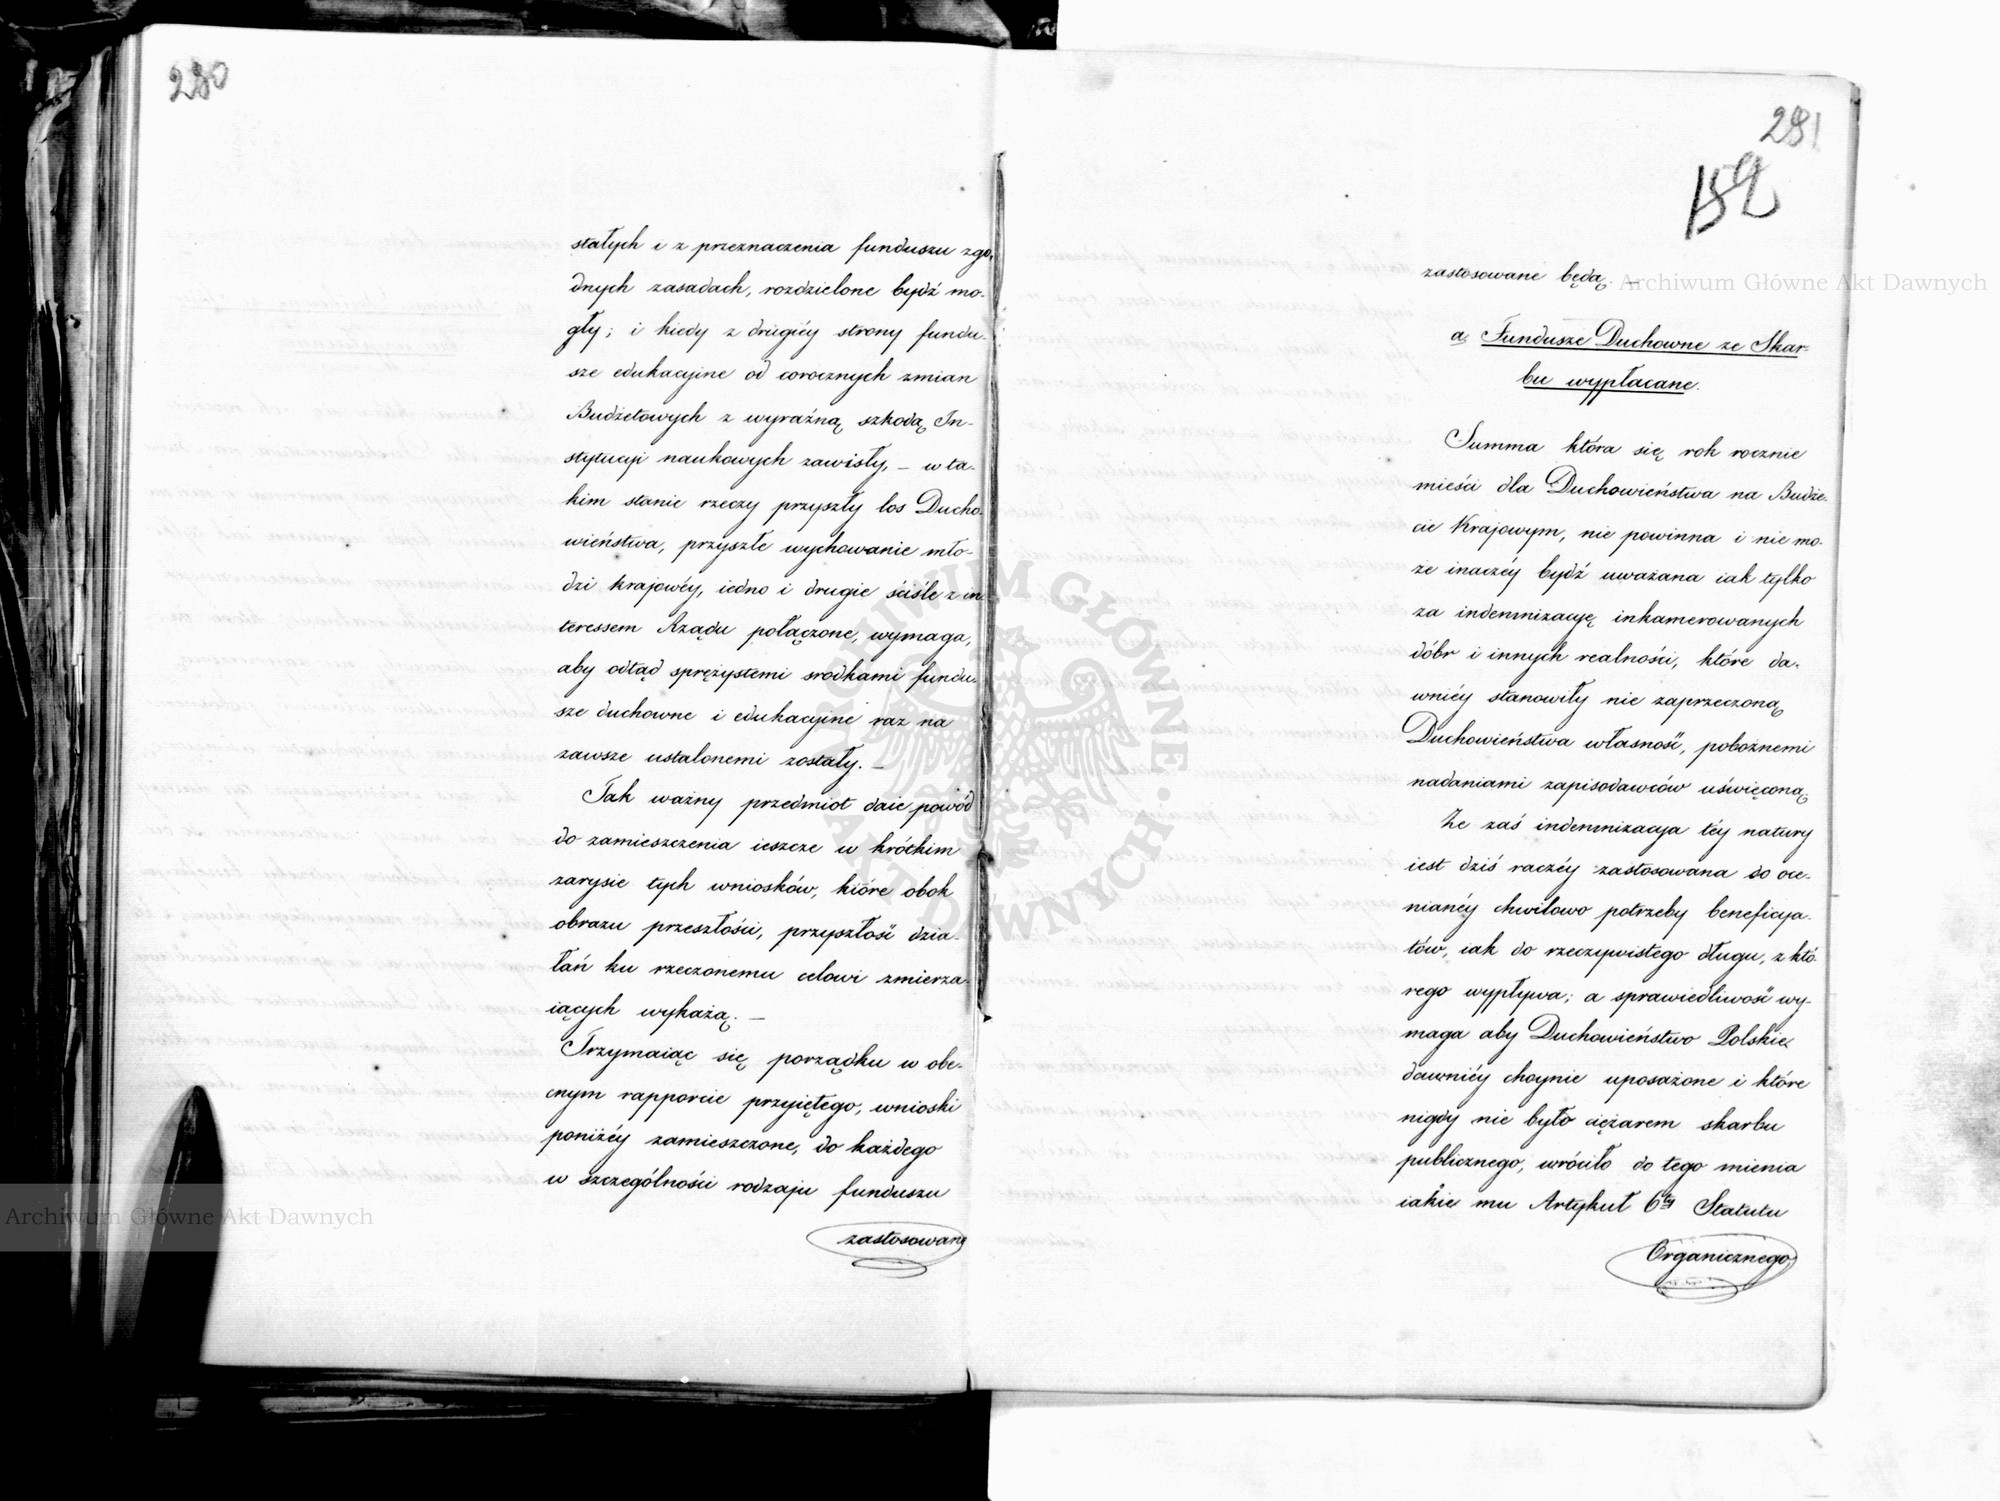 280
stałych i z przeznaczenia funduszu zgo-
dnych zasadach, rozdzielone bydź mo-
gły; i kiedy z drugiéy strony fundu-
sze edukacyine od corocznych zmian
Budżetowych z wyraźną szkodą In-
stytucyi naukowych zawisły, – w ta-
kim stanie rzeczy przyszły los Ducho-
wieństwa, przyszłe wychowanie mło-
dzi krajowéy, iedno i drugie ściśle z in-
teressem Rządu połączone, wymaga,
aby odtąd sprężystemi srodkami fundu-
sze duchowne i edukacyine raz na
zawsze ustalonemi zostały. –
Tak ważny przedmiot daie powód
do zamieszczenia ieszcze w krótkim
zarysie tych wniosków, które obok
obrazu przeszłości, przyszłość dzia-
łań ku rzeczonemu celowi zmierza-
iących wykażą. –
Trzymaiąc się porządku w obe-
cnym rapporcie przyiętego, wnioski
poniżéy zamieszczone, do każdego
w szczególności rodzaju funduszu
zastosowane
281
152
zastosowane będą. –
a. Fundusze Duchowne ze Skar-
bu wypłacane.
Summa która się rok rocznie
mieści dla Duchowieństwa na Budże-
cie Krajowym, nie powinna i nie mo-
że inaczéy bydź uważana iak tylko
za indemnizacyę inkamerowanych
dóbr i innych realności, które da-
wniéy stanowiły nie zaprzeczoną
Duchowieństwa własność, pobożnemi
nadaniami zapisodawców uświęconą.
Że zaś indemnizacya téy natury
iest dziś raczéy zastosowana do oce-
nianéy chwilowo potrzeby beneficya-
tów, iak do rzeczywistego długu, z któ-
rego wypływa; a sprawiedliwość wy-
maga aby Duchowieństwo Polskie
dawniéy choynie uposażone i które
nigdy nie było ciężarem skarbu
publicznego, wróciło do tego mienia
iakie mu Artykuł 6ty Statutu
Organicznego
Archiwum Główne Akt Dawnych
Archiwum Główne Akt Dawnych
ARCHIWUM GŁÓWNE AKT DAWNYCH